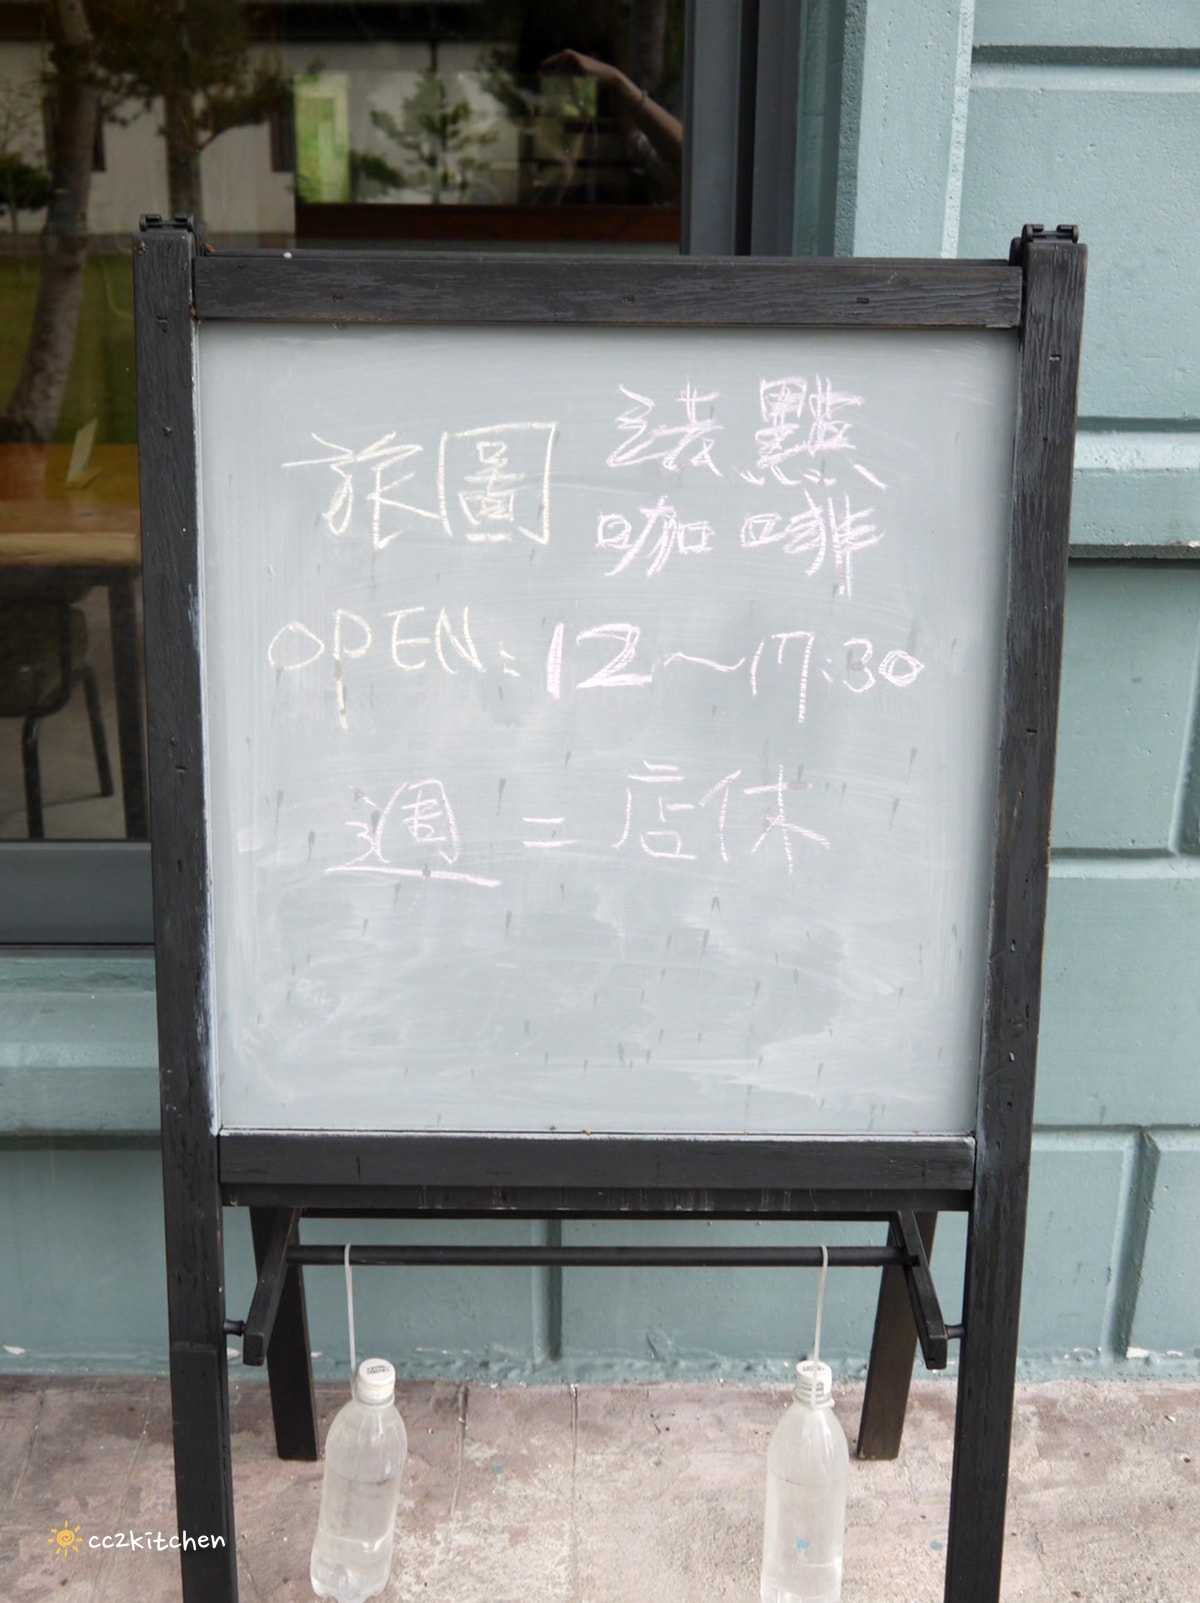 旅圖 法點
咖啡
OPEN: 12~17:30
週二店休
cc2kitchen